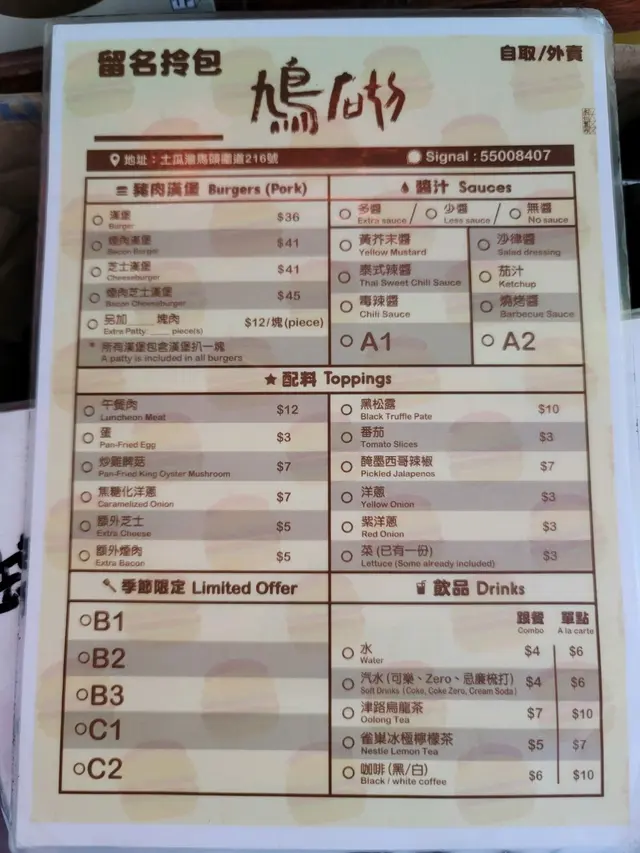 留名拎包
自取/外賣
鳩
地址：土瓜灣馬頭圍道216號
Signal : 55008407
豬肉漢堡 Burgers (Pork)
漢堡 $36
Burger
煙肉漢堡 $41
Bacon Burger
芝士漢堡 $41
Cheeseburger
煙肉芝士漢堡 $45
Bacon Cheeseburger
另加____塊肉 $12/塊(piece)
Extra Patty ____ piece(s)
* 所有漢堡包含漢堡扒一塊
A patty is included in all burgers
醬汁 Sauces
多醬 / 少醬 / 無醬
Extra sauce / Less sauce / No sauce
黃芥末醬 沙律醬
Yellow Mustard Salad dressing
泰式辣醬 茄汁
Thai Sweet Chili Sauce Ketchup
毒辣醬 燒烤醬
Chili Sauce Barbecue Sauce
A1 A2
配料 Toppings
午餐肉 $12
Luncheon Meat
蛋 $3
Pan-Fried Egg
炒雞髀菇 $7
Pan-Fried King Oyster Mushroom
焦糖化洋蔥 $7
Caramelized Onion
額外芝士 $5
Extra Cheese
額外煙肉 $5
Extra Bacon
黑松露 $10
Black Truffle Pate
番茄 $3
Tomato Slices
醃墨西哥辣椒 $7
Pickled Jalapenos
洋蔥 $3
Yellow Onion
紫洋蔥 $3
Red Onion
菜 (已有一份) $3
Lettuce (Some already included)
季節限定 Limited Offer
B1
B2
B3
C1
C2
飲品 Drinks
跟餐 單點
Combo A la carte
水 $4 $6
Water
汽水 (可樂、Zero、忌廉梳打) $4 $6
Soft Drinks (Coke, Coke Zero, Cream Soda)
津路烏龍茶 $7 $10
Oolong Tea
雀巢冰極檸檬茶 $5 $7
Nestle Lemon Tea
咖啡 (黑/白) $6 $10
Black / white coffee